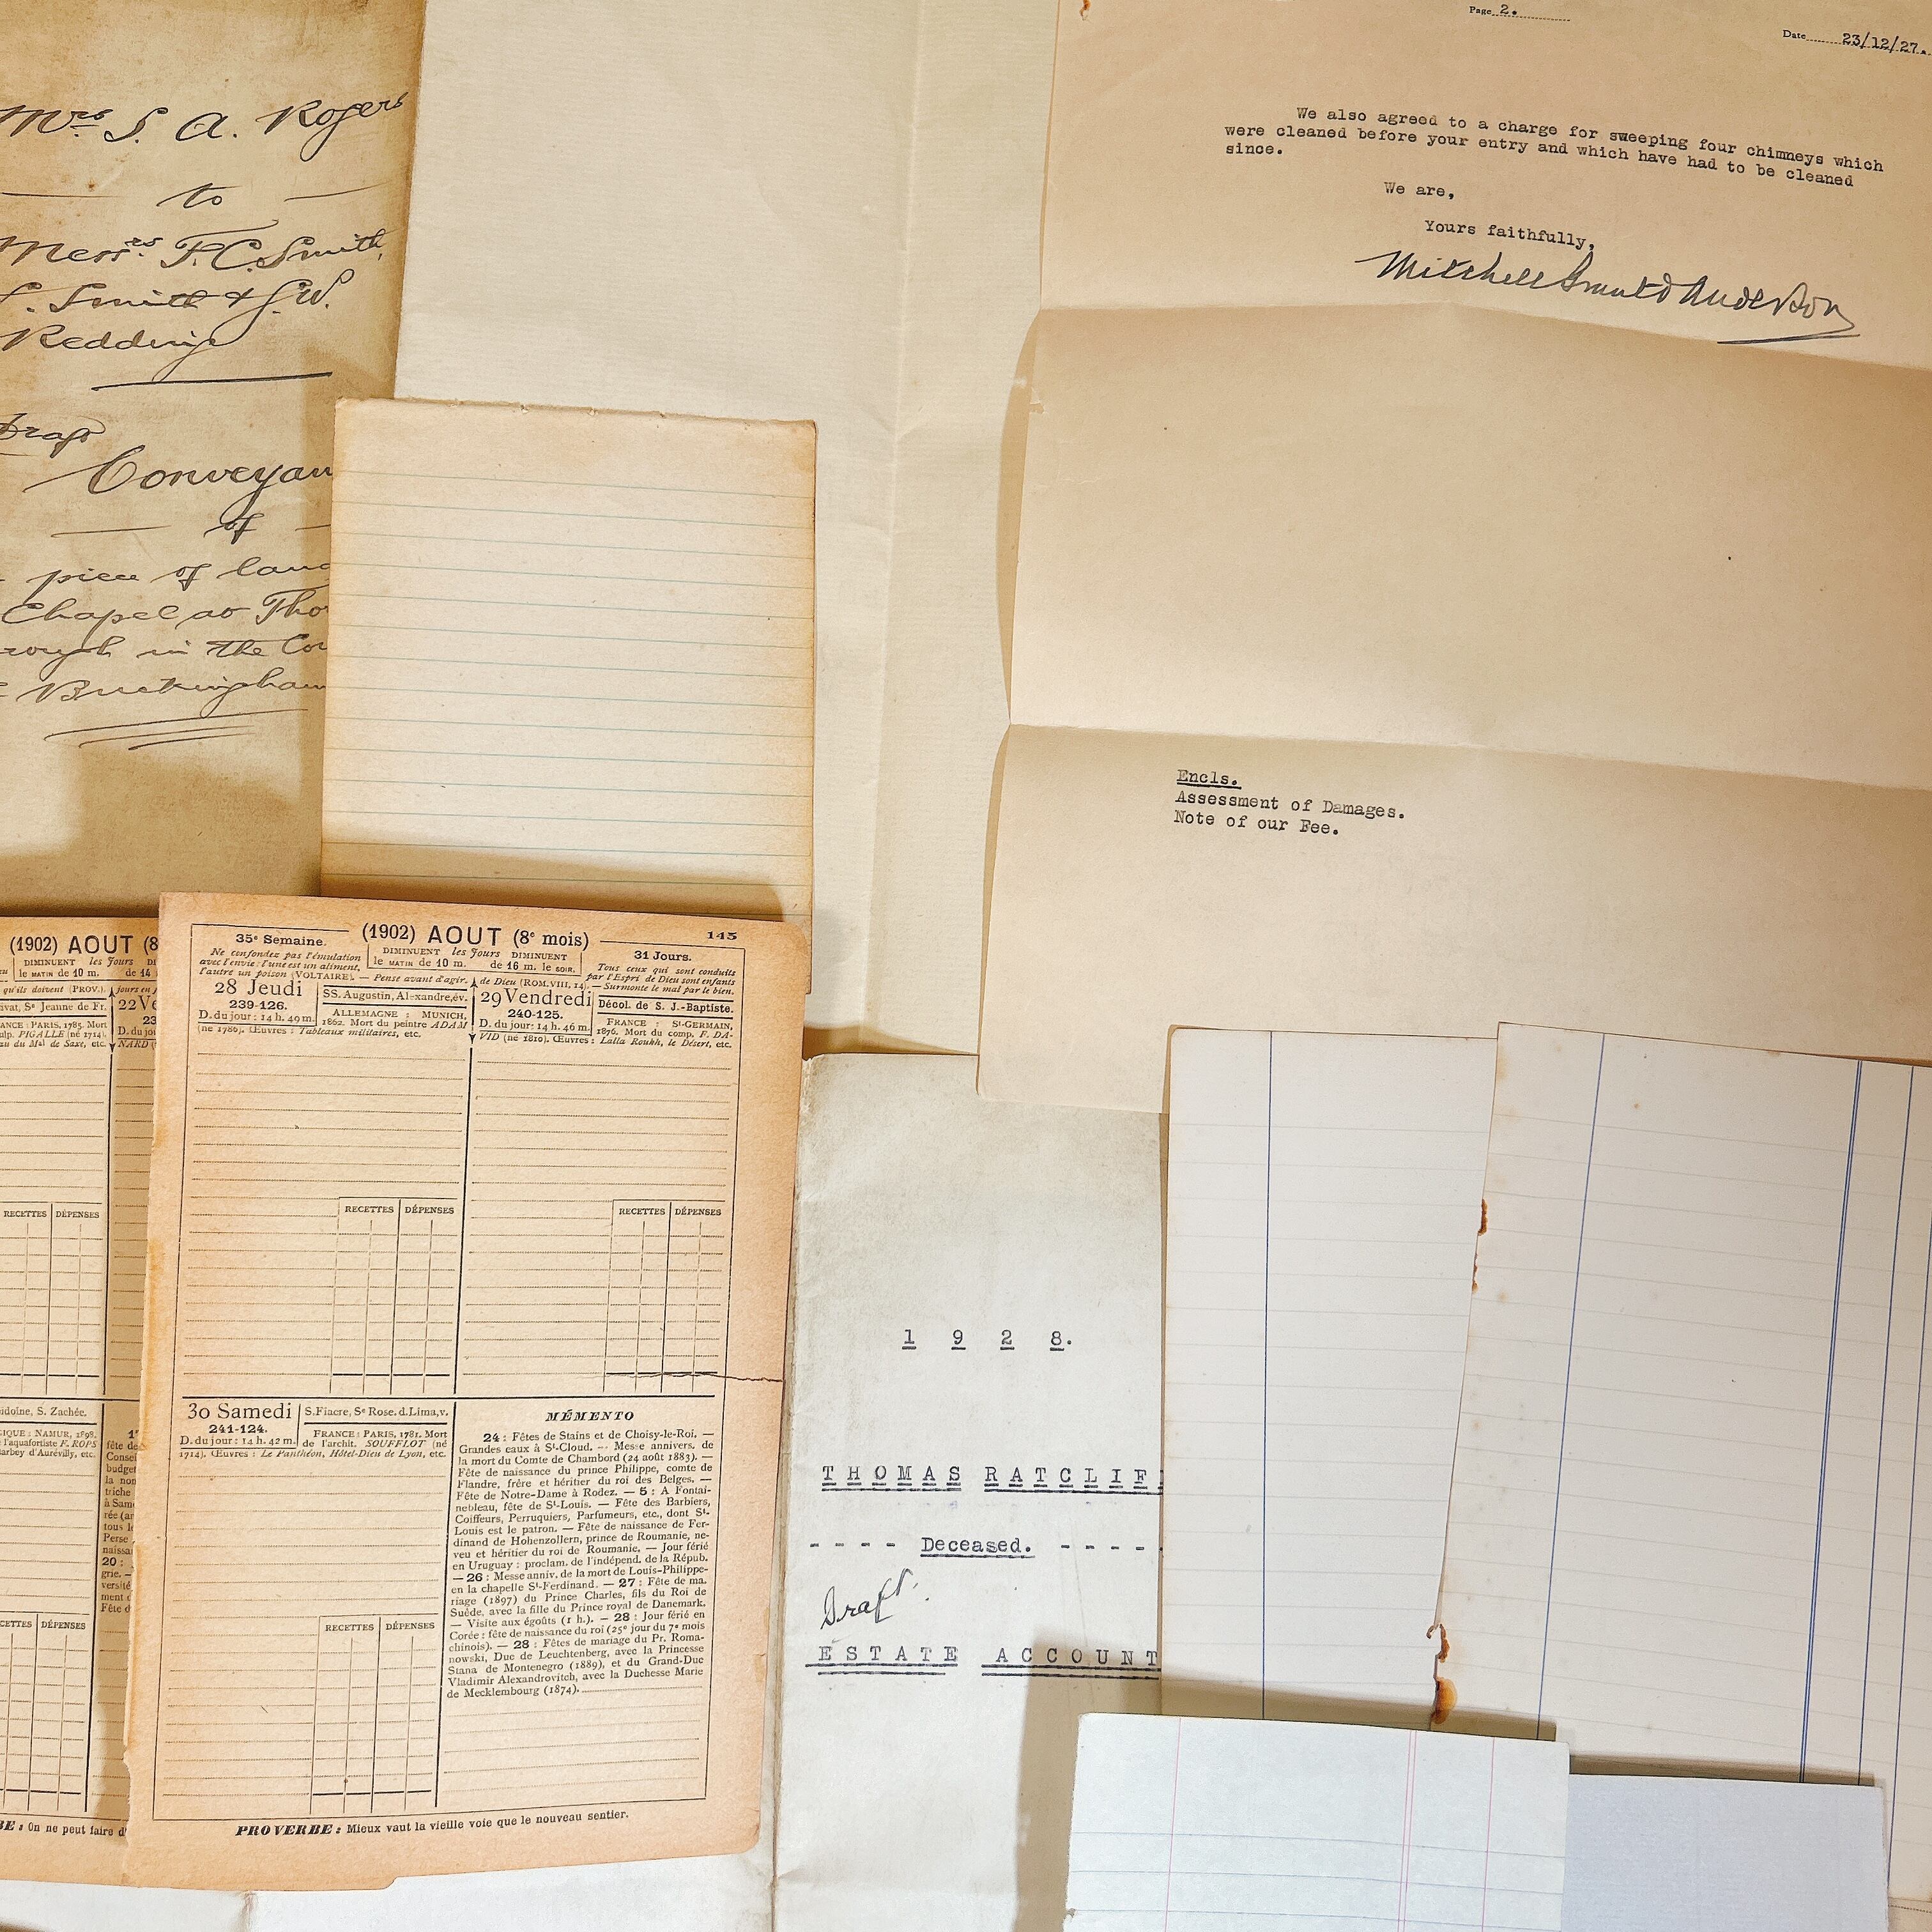 Mrs S. A. Rogers
to
Messrs. F. C. Smith,
Smith & J. W.
Redding
Draft
Conveyan
of
piece of land
Chapel at Tho
rough in the Co
Buckingham
Page 2.
Date 23/12/27.
We also agreed to a charge for sweeping four chimneys which
were cleaned before your entry and which have had to be cleaned
since.
We are,
Yours faithfully,
Mitchell Son and Anderson
Encls.
Assessment of Damages.
Note of our Fee.
(1902) AOUT (8
DIMINUENT les Jours
le MATIN de 10 m. de 14
qu'ils doivent (PROV.). jours en
ivat, Se Jeanne de Fr. 22 Ve
ANCE : PARIS, 1785. Mort
ulp. PIGALLE (né 1714). D. du jou
au du Mal de Saxe, etc. NARD
RECETTES DÉPENSES
idoine, S. Zachée.
GIQUE : NAMUR, 1898.
l'aquafortiste F. ROPS
arbey d'Aurévilly, etc.
fête de
Consei
budget
la nom
triche
à Sam
rée (an
tous le
Perse
naissa
20 :
grie. —
versité
ment d
Fête d
CETTES DÉPENSES
BE : On ne peut faire d'
35e Semaine. (1902) AOUT (8e mois) 145
Ne confondez pas l'émulation DIMINUENT les Jours DIMINUENT 31 Jours.
avec l'envie : l'une est un aliment, le MATIN de 10 m. de 16 m. le SOIR. Tous ceux qui sont conduits
l'autre un poison (VOLTAIRE). — Pense avant d'agir. de Dieu (ROM. VIII, 14). — par l'Esprit de Dieu sont enfants
Surmonte le mal par le bien.
28 Jeudi SS. Augustin, Al-xandre,év.
239-126. ALLEMAGNE : MUNICH,
D. du jour : 14 h. 49 m. 1862. Mort du peintre ADAM
(né 1786). Œuvres : Tableaux militaires, etc.
29 Vendredi Décol. de S. J.-Baptiste.
240-125. FRANCE : St-GERMAIN,
D. du jour : 14 h. 46 m. 1876. Mort du comp. F. DA-
VID (né 1810). Œuvres : Lalla Roukh, le Désert, etc.
RECETTES DÉPENSES
RECETTES DÉPENSES
30 Samedi S. Fiacre, Se Rose. d. Lima, v.
241-124. FRANCE : PARIS, 1781. Mort
D. du jour : 14 h. 42 m. de l'archit. SOUFFLOT (né
1714). Œuvres : Le Panthéon, Hôtel-Dieu de Lyon, etc.
RECETTES DÉPENSES
MÉMENTO
24 : Fêtes de Stains et de Choisy-le-Roi. —
Grandes eaux à St-Cloud. — Messe annivers. de
la mort du Comte de Chambord (24 août 1883). —
Fête de naissance du prince Philippe, comte de
Flandre, frère et héritier du roi des Belges. —
Fête de Notre-Dame à Rodez. — 5 : A Fontai-
nebleau, fête de St-Louis. — Fête des Barbiers,
Coiffeurs, Perruquiers, Parfumeurs, etc., dont St-
Louis est le patron. — Fête de naissance de Fer-
dinand de Hohenzollern, prince de Roumanie, ne-
veu et héritier du roi de Roumanie. — Jour férié
en Uruguay : proclam. de l'indépend. de la Répub.
— 26 : Messe anniv. de la mort de Louis-Philippe
en la chapelle St-Ferdinand. — 27 : Fête de ma-
riage (1897) du Prince Charles, fils du Roi de
Suède, avec la fille du Prince royal de Danemark.
— Visite aux égoûts (1 h.). — 28 : Jour férié en
Corée : fête de naissance du roi (25e jour du 7e mois
chinois). — 28 : Fêtes de mariage du Pr. Roma-
nowski, Duc de Leuchtenberg, avec la Princesse
Stana de Montenegro (1889), et du Grand-Duc
Vladimir Alexandrovitch, avec la Duchesse Marie
de Mecklembourg (1874).
PROVERBE : Mieux vaut la vieille voie que le nouveau sentier.
1 9 2 8.
THOMAS RATCLIFF
- - - - Deceased. - - - -
Draft.
ESTATE ACCOUNT